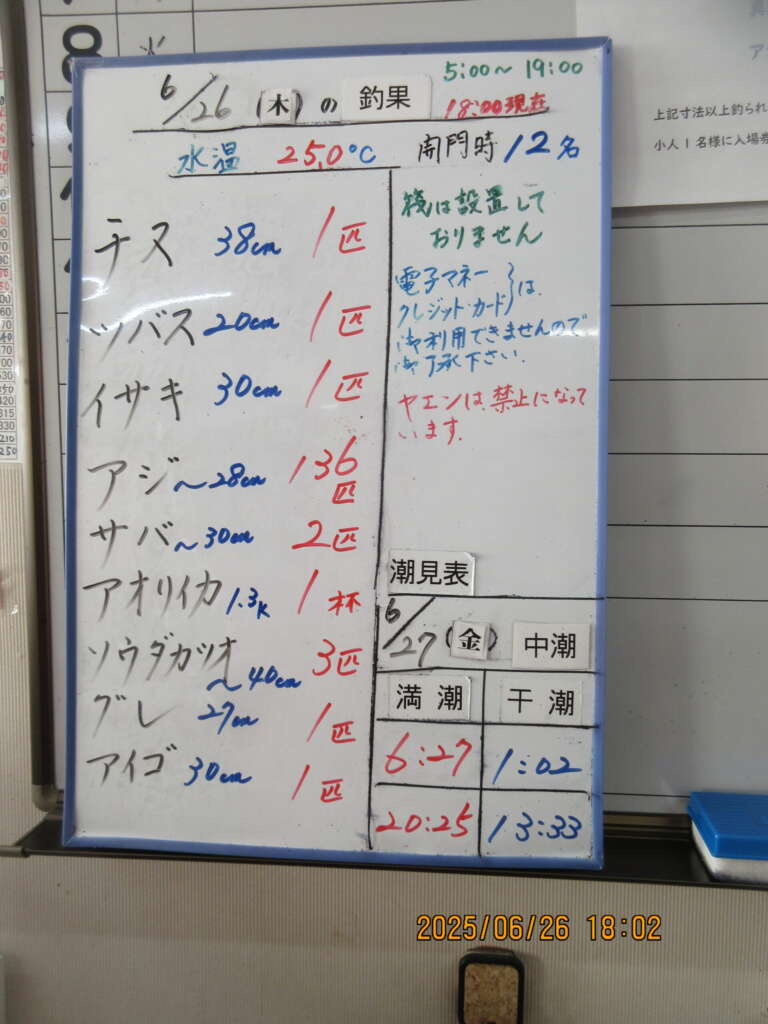 6/26 (木) の 釣果
5:00～19:00
18:00現在
水温 25.0℃ 開門時 12名
チヌ 38cm 1匹
ツバス 20cm 1匹
イサキ 30cm 1匹
アジ ～28cm 136匹
サバ ～30cm 2匹
アオリイカ 1.3k 1杯
ソウダガツオ ～40cm 3匹
グレ 27cm 1匹
アイゴ 30cm 1匹
筏は設置して
おりません
電子マネー
クレジット・カード}は
御利用できませんので
御了承下さい.
ヤエンは禁止になって
います.
潮見表
6/27 (金) 中潮
満潮 干潮
6:27 1:02
20:25 13:33
上記寸法以上釣られ
小人1名様に入場券
8
2025/06/26 18:02